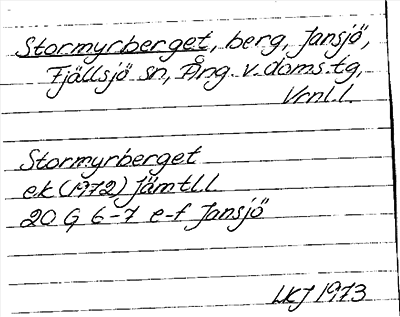 Stormyrberget, berg, Jansjö,
Fjällsjö sn, Ång. v. doms.tg,
Vrnl.l.
Stormyrberget
ek (1972) Jämtl.l
20 G 6-7 e-f Jansjö
LKJ 1973